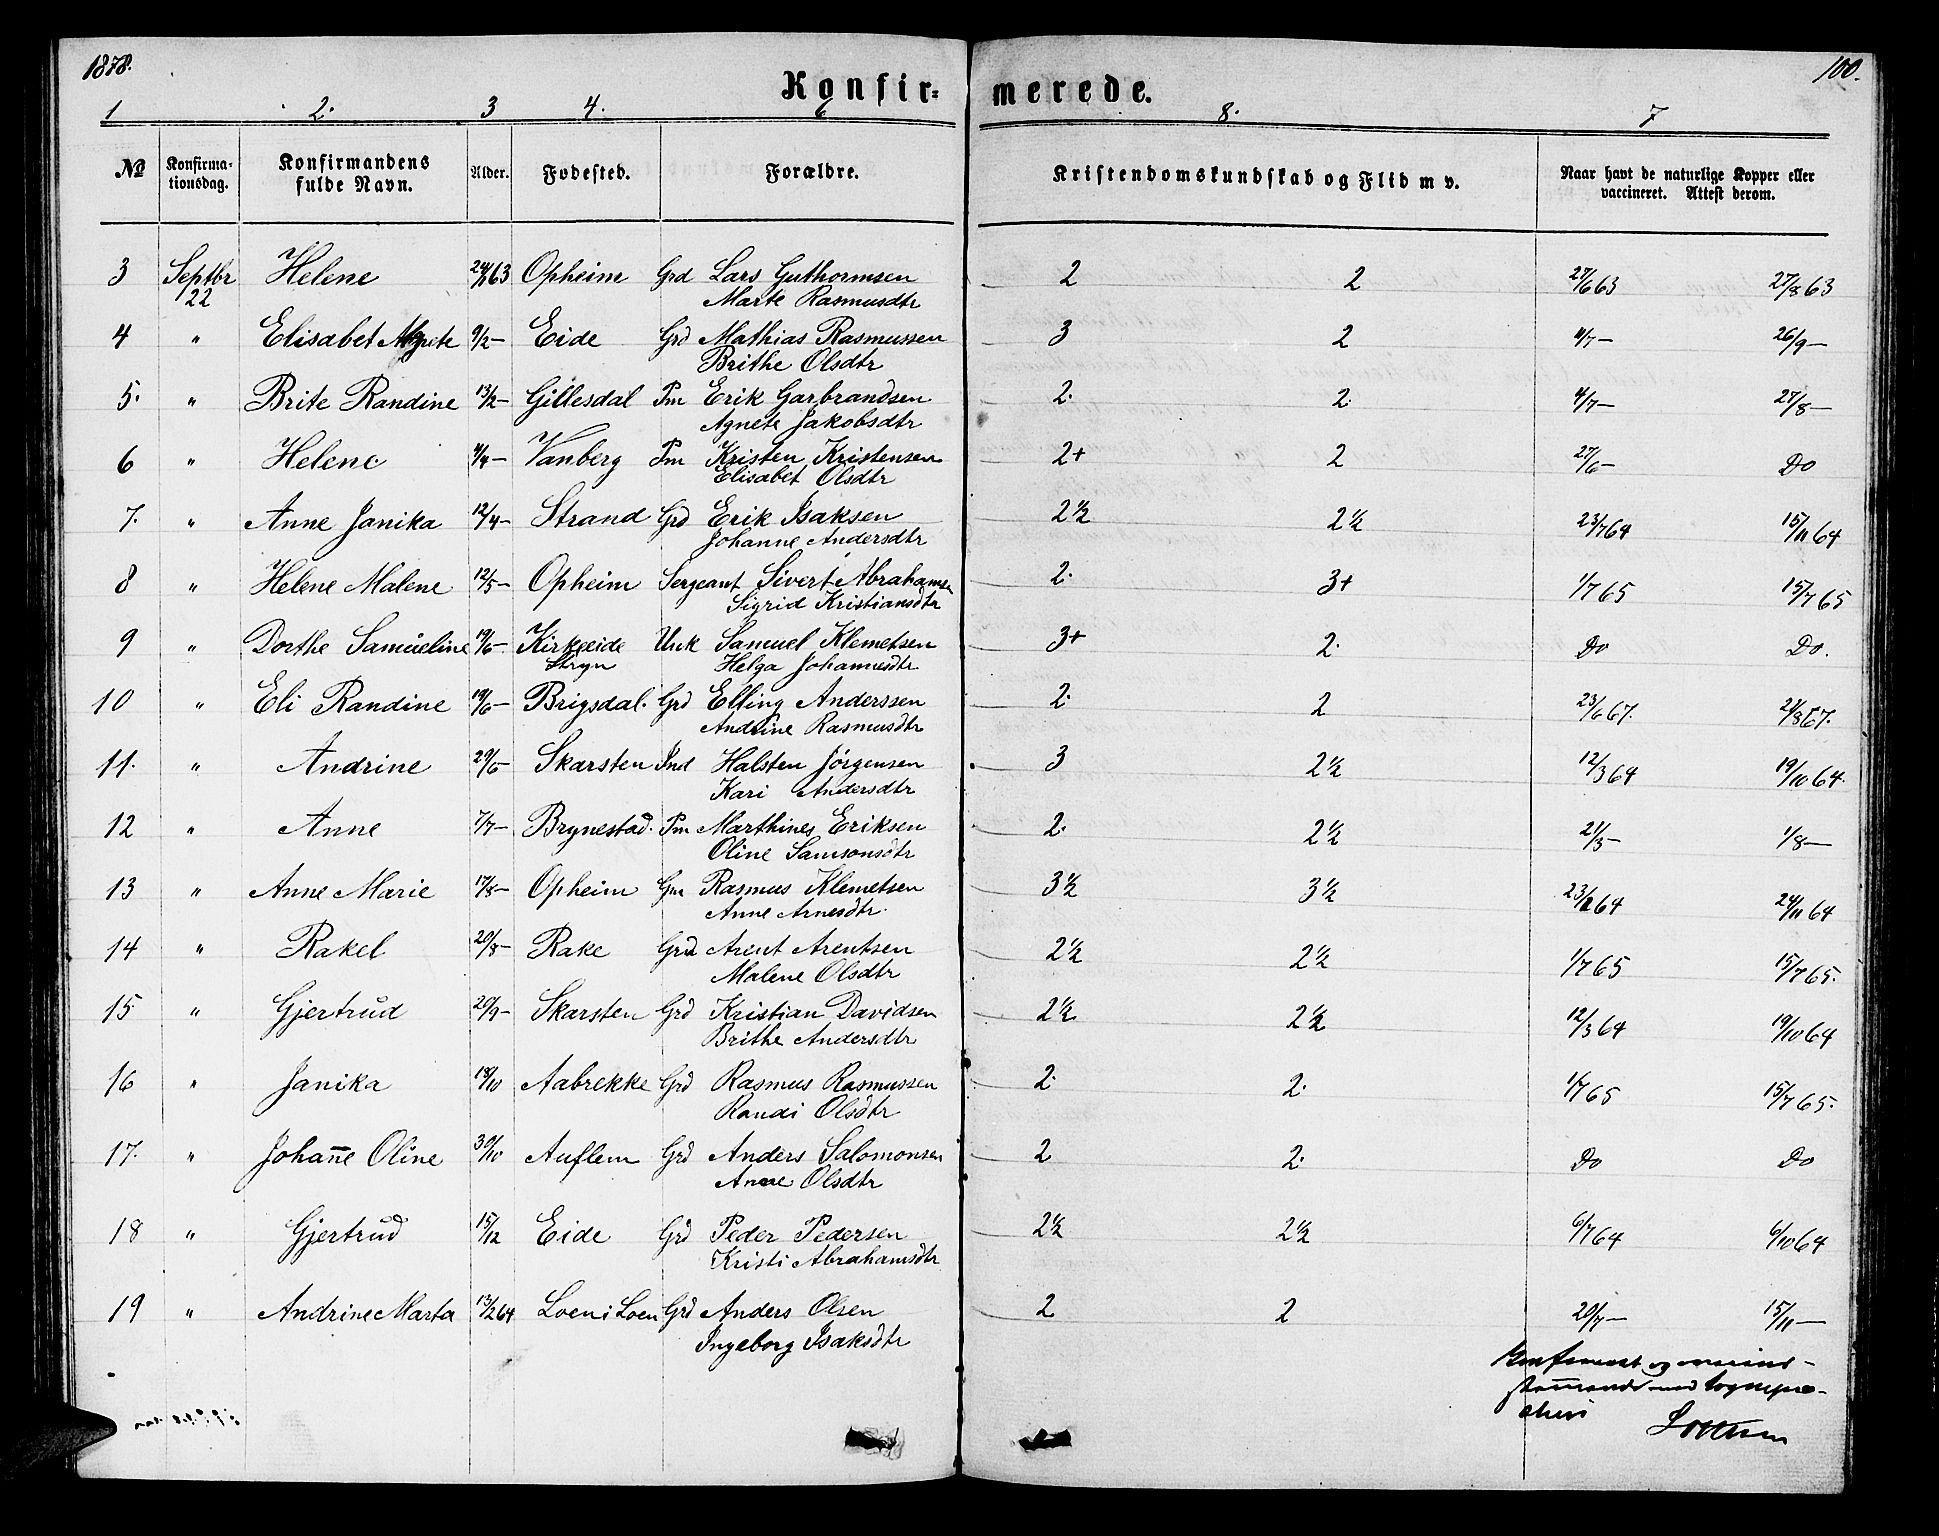 1878. 100.
Konfir= merede.
1 2. 3 4. 6 8. 7
No Konfirma-tionsdag. Konfirmandens fulde Navn. Alder. Fødested. Forældre. Kristendomskundskab og Flid m v. Naar havt de naturlige Kopper eller vaccineret. Attest derom.
3 Septbr Helene 63 Opheim Grd Lars Guthormsen 2 2 27/6 63 27/8 63
22 Marte Rasmusdtr
4 " Elisabet Agnete 9/2- Eide Grd Mathias Rasmussen 3 2 4/7- 26/9-
Brithe Olsdtr
5. " Brite Randine 13/2- Gillesdal Pm Erik Garbrandsen 2. 2. 4/7- 27/8-
Agnete Jakobsdtr
6 " Helene 4/4- Vanberg Pm Kristen Kristensen 2+ 2 27/6- Do
Elisabet Olsdtr
7. " Anne Janika 12/4- Strand Grd Erik Isaksen 2½ 2½ 23/7 64 15/11 64
Johanne Andersdtr
8 " Helene Malene 12/5- Opheim Sergeant Sivert Abrahamsen 2. 3+ 1/7 65 15/7 65
Sigrid Kristiansdtr
9 " Dorthe Samueline 19/6- Kirkeeide Unk Samuel Klemetsen 3+ 2. Do Do.
Stryn Helga Johannesdtr
10 " Eli Randine 19/6- Brigsdal. Grd Elling Anderssen 2. 2 23/6 67. 21/8 67.
Andrine Rasmusdtr
11. " Andrine 29/6- Skarsten Ind Halsten Jörgensen 3 2½ 12/3 64 19/10 64.
Kari Andersdtr
12 " Anne 7/7- Brynestad. Pm Marthines Eriksen 2. 2½ 21/3- 1/8-
Oline Samsonsdtr
13 " Anne Marie 17/8- Opheim Gm Rasmus Klemetsen 3½ 3½ 64 24/11 64
Anne Arnesdtr.
14 " Rakel 20/8- Rake Grd Arent Arentsen 2½ 2½ 1/7 65 15/7 65.
Malene Olsdtr
15 " Gjertrud 20/9- Skarsten Grd Kristian Davidsen 2½ 2½ 12/3 64 19/10 64
Brithe Andersdtr
16 " Janika 18/10 Aabrekke Grd Rasmus Rasmussen 2. 2. 1/7 65 15/7 65.
Randi Olsdtr
17. " Johan̄e Oline 30/10 Auflem Grd Anders Salomonsen 2 2. Do Do
Anne Olsdtr
18 " Gjertrud 15/12 Eide Grd Peder Pedersen 2½ 2½ 6/7 64 6/10 64
Kristi Abrahamsdtr
19 " Andrine Marta 13/2 64 Loen i Loen Grd Anders Olsen 2 2 20/7- 15/11-
Ingeborg Isaksdtr
og